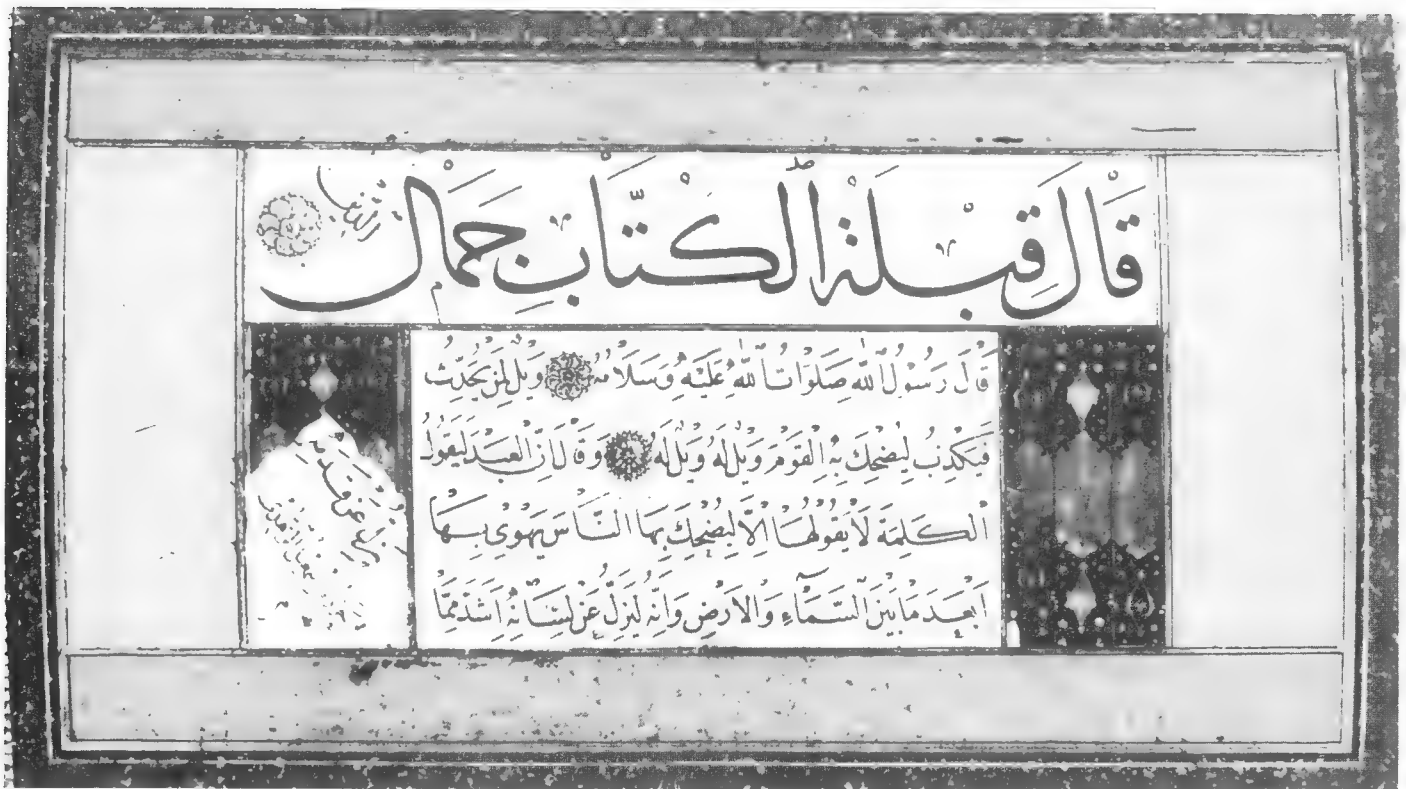 قَالَ قِبْلَةُ الْكُتَّابِ جَمَالُ الدِّينِ
قَالَ رَسُولُ اللّٰهِ صَلَوَاتُ اللّٰهِ عَلَيْهِ وَسَلَامُهُ وَيْلٌ لِمَنْ يُحَدِّثُ
فَيَكْذِبُ لِيُضْحِكَ بِهِ الْقَوْمَ وَيْلٌ لَهُ وَيْلٌ لَهُ وَقَالَ اِنَّ الْعَبْدَ لَيَقُولُ
الْكَلِمَةَ لَا يَقُولُهَا اِلَّا لِيُضْحِكَ بِهَا النَّاسَ يَهْوِي بِهَا
اَبْعَدَ مَا بَيْنَ السَّمَاءِ وَالْاَرْضِ وَاِنَّهُ لَيَزِلُّ عَنْ لِسَانِهِ اَشَدَّ مِمَّا
يَزِلُّ عَنْ قَدَمِهِ